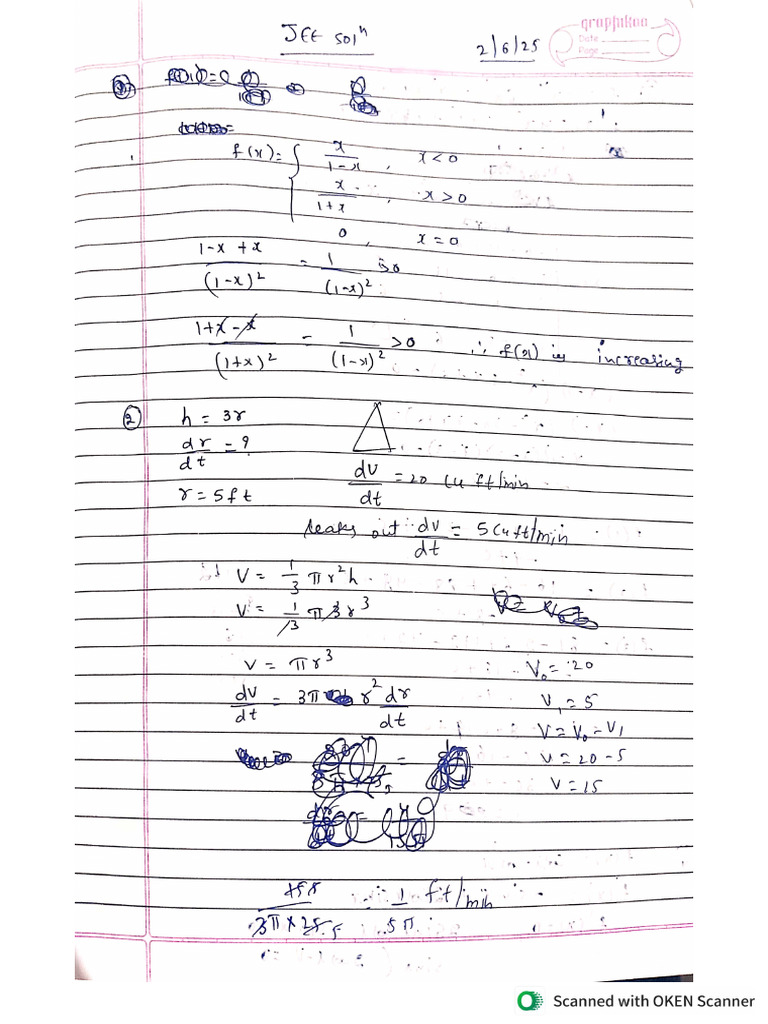 JEE solⁿ
graphikaa
Date
Page
2/6/25
f(x) = { x/(1-x), x<0
x/(1+x), x>0
0, x=0
(1-x+x)/(1-x)² = 1/(1-x)² >0
(1+x-x)/(1+x)² = 1/(1-x)² >0 ∴ f(x) is increasing
② h = 3r
dr/dt = ?
dv/dt = 20 cu ft/min
r = 5ft
leaks out dv/dt = 5 cu ft/min
V = 1/3 πr²h
V = 1/3 π3r³
V = πr³
V₀ = 20
dv/dt = 3π r² dr/dt
V₁ = 5
V = V₀ - V₁
V = 20 - 5
V = 15
/3π×25 5 = 1/5π ft/min
Scanned with OKEN Scanner